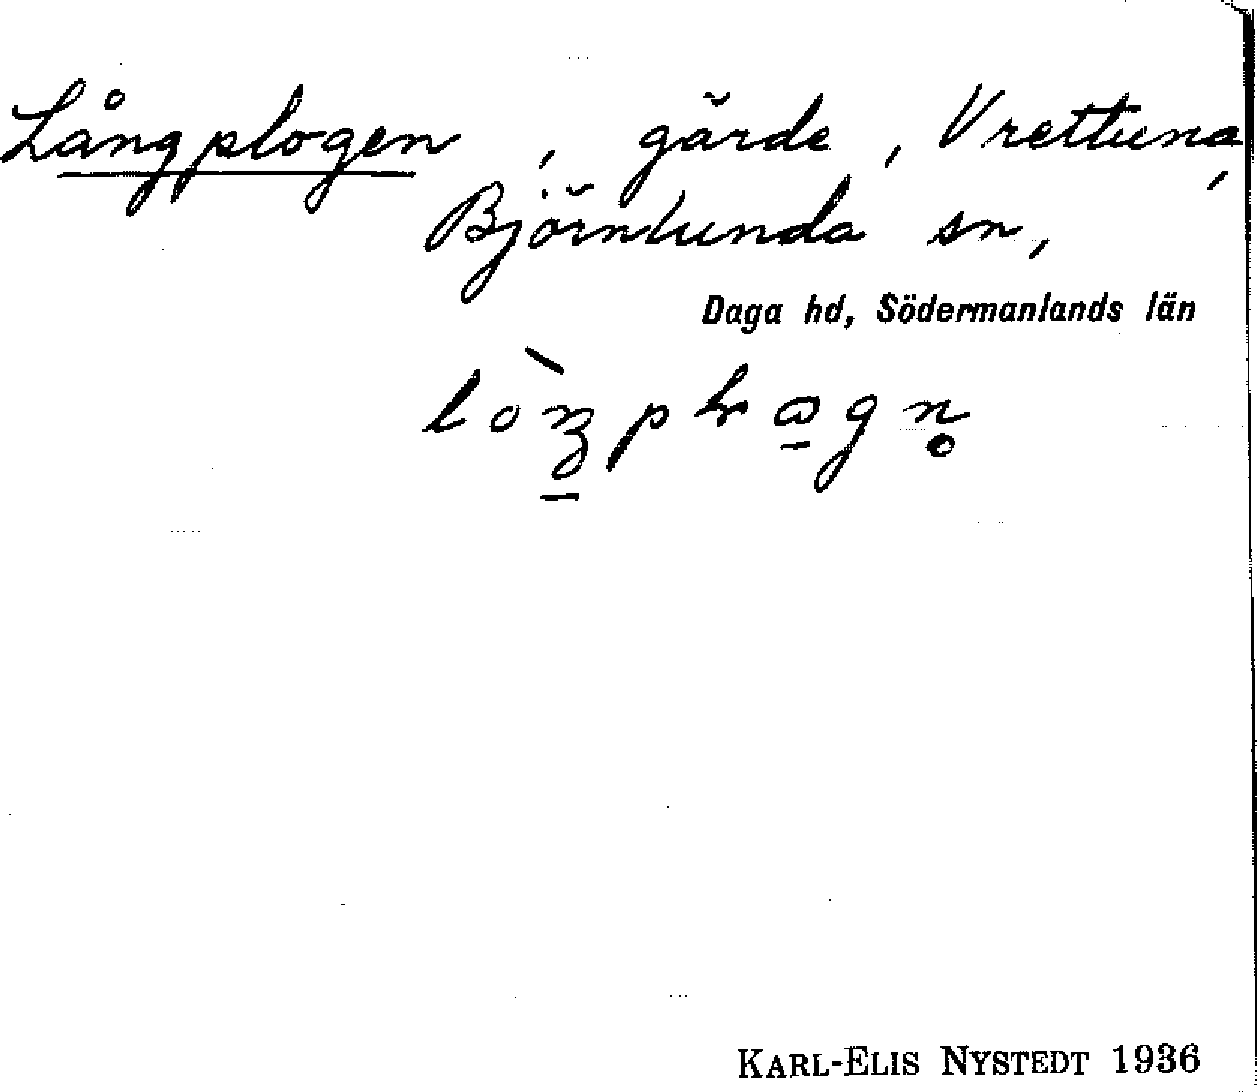 Långplogen, gärde, Vrettuna,
Björnlunda sn,
Daga hd, Södermanlands län
KARL-ELIS NYSTEDT 1936